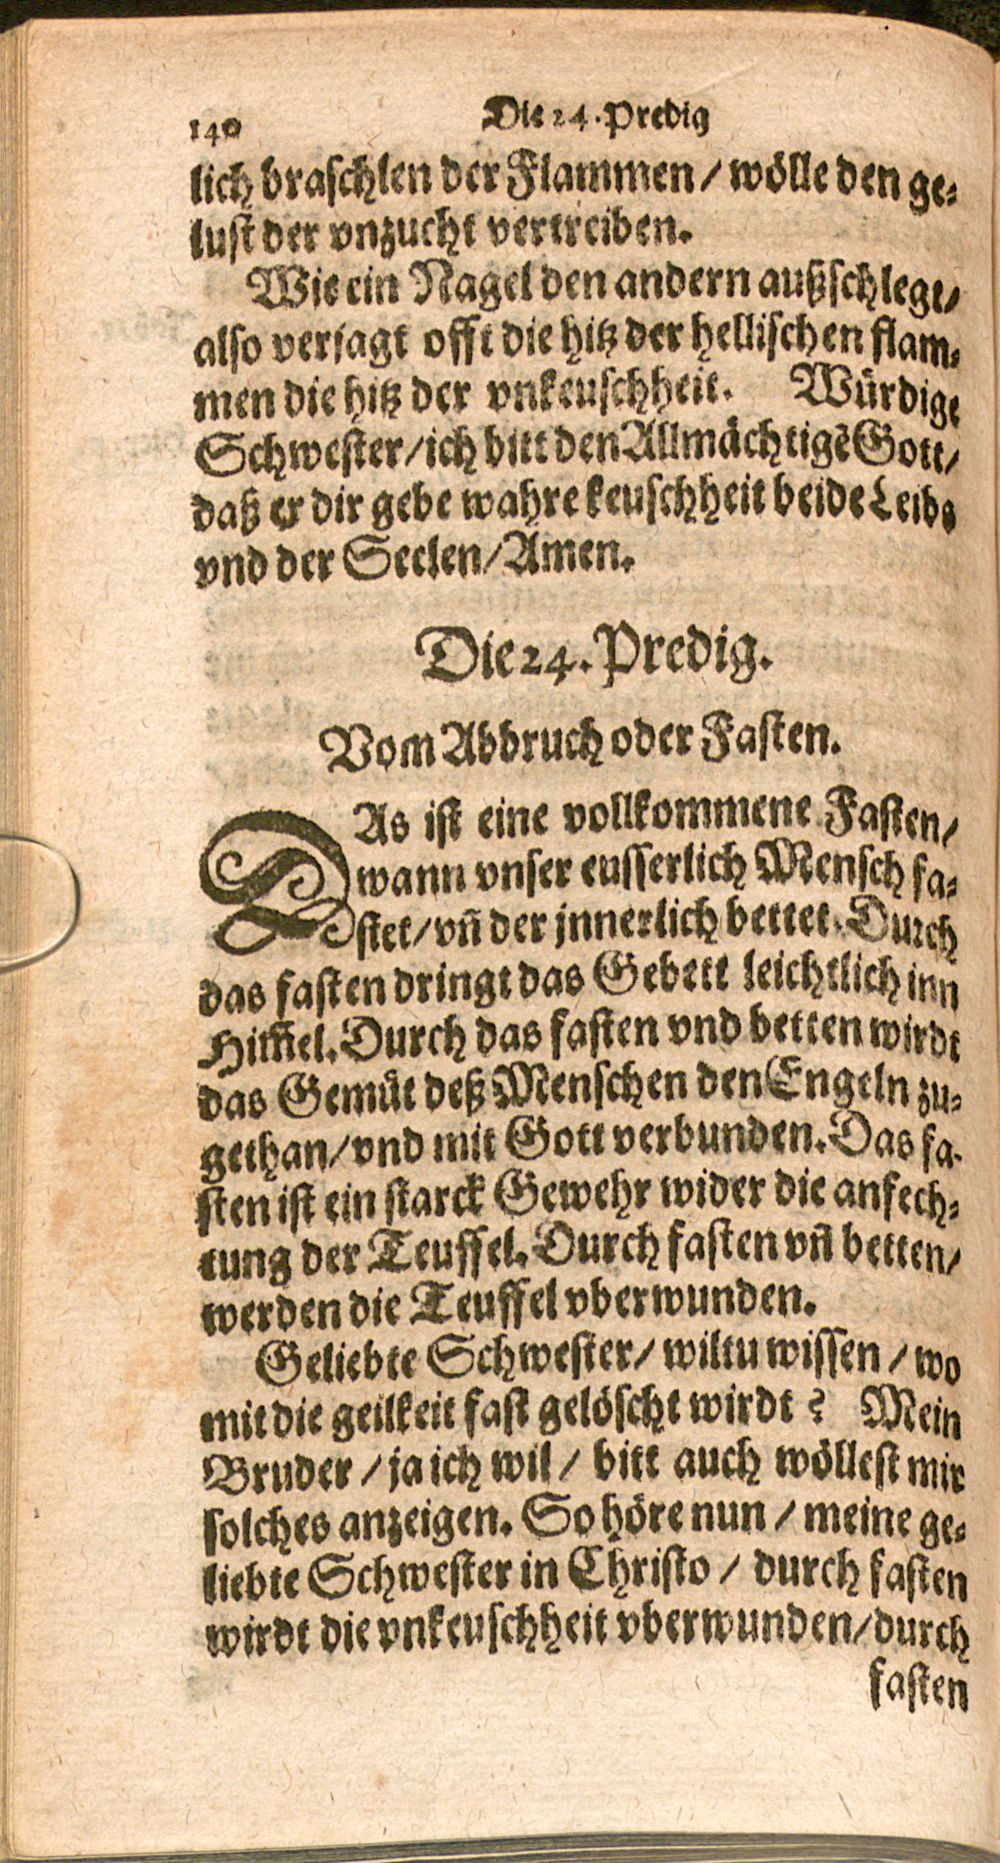 140 Die 24. Predig
lich braschlen der Flammen / wölle den ge⸗
lust der vnzucht vertreiben.
Wie ein Nagel den andern außschlegt /
also verjagt offt die hitz der hellischen flam⸗
men die hitz der vnkeuschheit. Würdige
Schwester / ich bitt den Allmächtigẽ Gott /
daß er dir gebe wahre keuschheit beide Leibs
vnd der Seelen / Amen.
Die 24. Predig.
Vom Abbruch oder Fasten.
DAs ist eine vollkommene Fasten /
wann vnser eusserlich Mensch fa⸗
stet / vñ der jnnerlich bettet. Durch
das fasten dringt das Gebett leichtlich inn
Him̃el. Durch das fasten vnd betten wirdt
das Gemüt deß Menschen den Engeln zu⸗
gethan / vnd mit Gott verbunden. Das fa⸗
sten ist ein starck Gewehr wider die anfech⸗
tung der Teuffel. Durch fasten vñ betten /
werden die Teuffel vberwunden.
Geliebte Schwester / wiltu wissen / wo
mit die geilkeit fast gelöscht wirdt? Mein
Bruder / ja ich wil / bitt auch wöllest mir
solches anzeigen. So höre nun / meine ge⸗
liebte Schwester in Christo / durch fasten
wirdt die vnkeuschheit vberwunden / durch
fasten